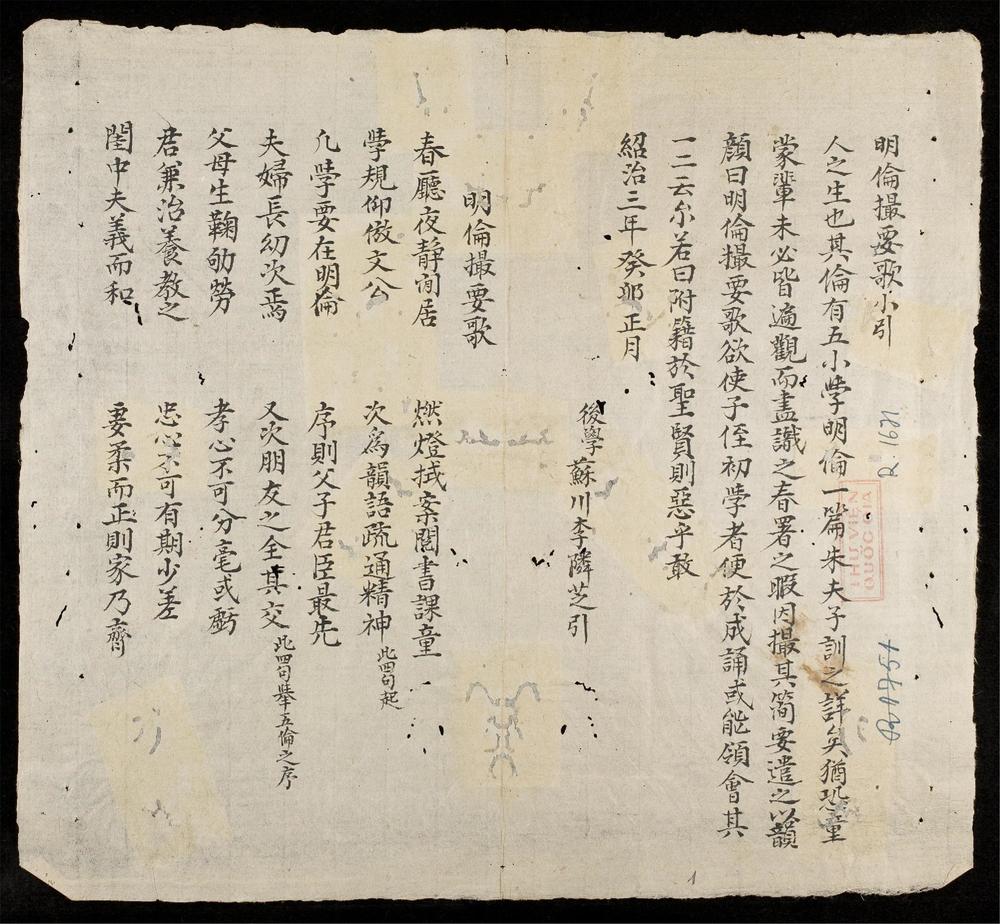 明倫撮要歌小引
人之生也其倫有五小斈明倫一篇朱夫子訓之詳矣猶恐童
蒙輩未必皆遍觀而盡識之春署之暇因撮其简要遣之以韻
顔曰明倫撮要歌欲使子侄初斈者便於成誦或能領會其
一二云尔若曰附籍於聖賢則惡乎敢
紹治三年癸卯正月
後學蘇川李隣芝引
明倫撮要歌
春廳夜静閒居 燃燈拭案閱書課童
斈規仰倣文公 次為韻語疏通精神 此四句起
凢斈要在明倫 序則父子君臣最先
夫婦長幼次焉 又次朋友之全其交 此四句舉五倫之序
父母生鞠劬勞 孝心不可分毫或虧
君兼治養教之 忠心不可有期少差
閨中夫義而和 妻柔而正則家乃齊
R.1621
THƯ VIỆN
QUỐC GIA
1